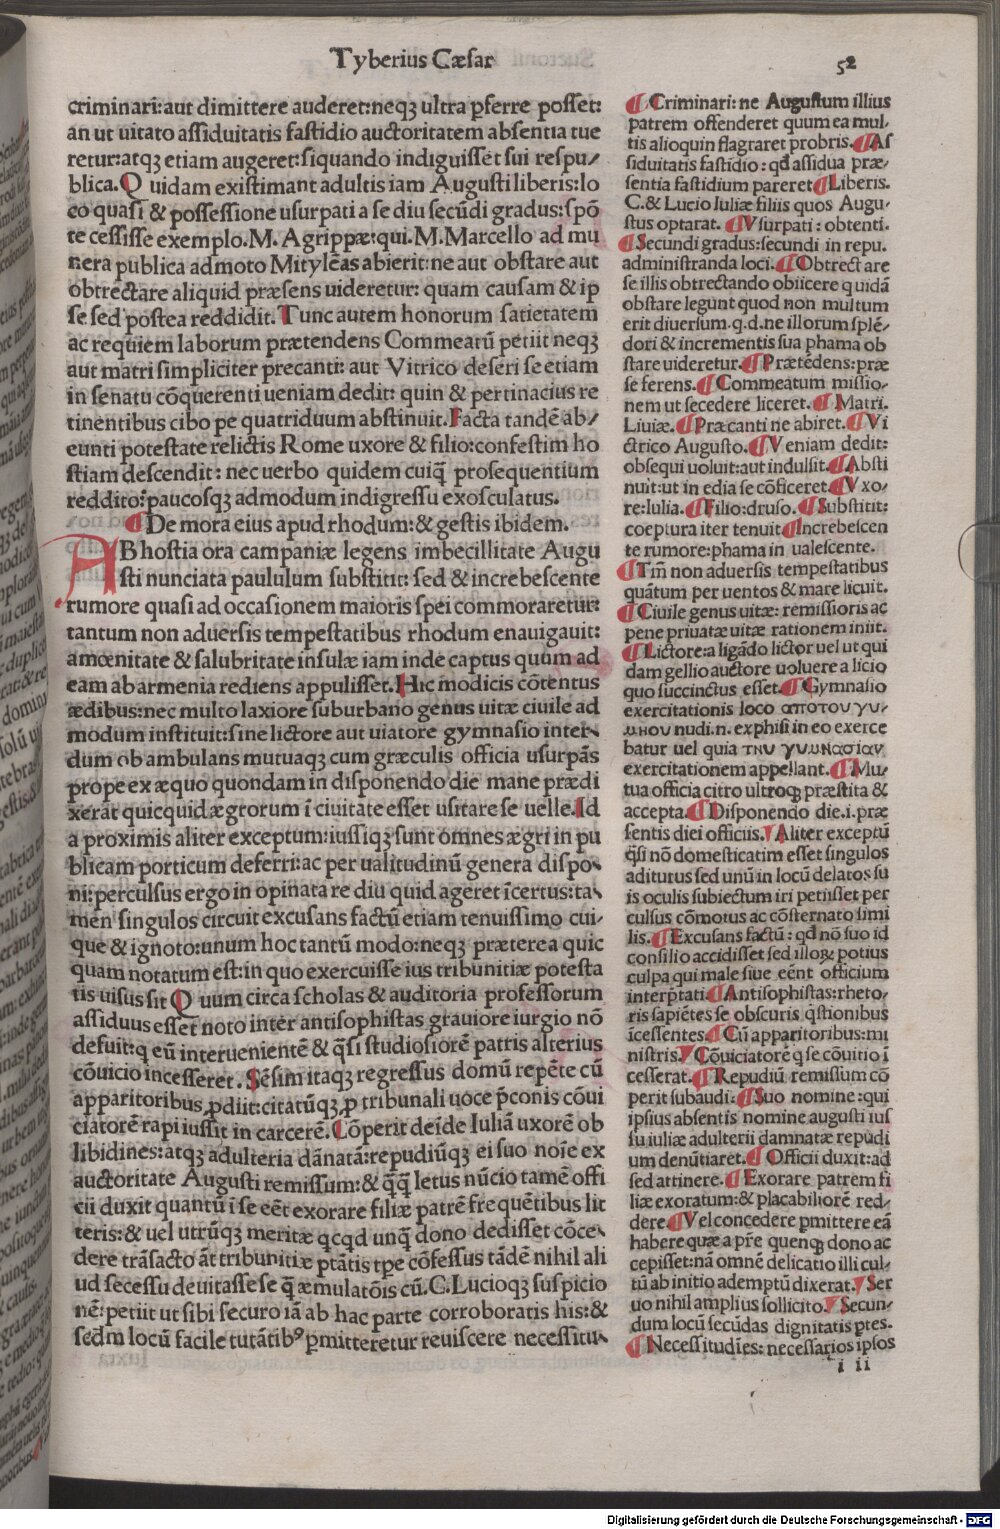 Tyberius Cæsar
52
criminari: aut dimittere auderet: neqꝫ ultra ꝑferre posset:
an ut uitato assiduitatis fastidio auctoritatem absentia tue
retur: atqꝫ etiam augeret: siquando indiguisset sui respu/
blica. Quidam existimant adultis iam Augusti liberis: lo
co quasi & possessione usurpati a se diu secũdi gradus: spõ
te cessisse exemplo. M. Agrippæ: qui. M. Marcello ad mu
nera publica admoto Mitylẽas abierit: ne aut obstare aut
obtrectare aliquid præsens uideretur: quam causam & ip
se sed postea reddidit. Tunc autem honorum satietatem
ac requiem laborum prætendens Commeatũ petiit neqꝫ
aut matri simpliciter precanti: aut Vitrico deseri se etiam
in senatu cõquerenti ueniam dedit: quin & pertinacius re
tinentibus cibo pe quatriduum abstinuit. Facta tandẽ ab/
eunti potestate relictis Rome uxore & filio: confestim ho
stiam descendit: nec uerbo quidem cuiq̃ prosequentium
reddito: paucosqꝫ admodum indigressu exosculatus.
¶ De mora eius apud rhodum: & gestis ibidem.
AB hostia ora campaniæ legens imbecillitate Augu
sti nunciata paululum substitit: sed & increbescente
rumore quasi ad occasionem maioris spei commoraretur:
tantum non aduersis tempestatibus rhodum enauigauit:
amœnitate & salubritate insulæ iam inde captus quum ad
eam ab armenia rediens appulisset. Hic modicis cõtentus
ædibus: nec multo laxiore suburbano genus uitæ ciuile ad
modum instituit: sine lictore aut uiatore gymnasio inter-
dum ob ambulans mutuaqꝫ cum græculis officia usurpãs
prope ex æquo quondam in disponendo die mane prædi
xerat quicquid ægrorum ĩ ciuitate esset uisitare se uelle. Id
a proximis aliter exceptum: iussiqꝫ sunt omnes ægri in pu
blicam porticum deferri: ac per ualitudinũ genera dispo-
ni: perculsus ergo in opinata re diu quid ageret ĩcertus: ta-
men singulos circuit excusans factũ etiam tenuissimo cui-
que & ignoto: unum hoc tantũ modo: neqꝫ præterea quic
quam notatum est: in quo exercuisse ius tribunitiæ potesta
tis uisus sit Quum circa scholas & auditoria professorum
assiduus esset noto inter antisophistas grauiore iurgio nõ
defuit: q eũ interuenientẽ & q̃si studiosiorẽ patris alterius
cõuicio incesseret. Sẽsim itaqꝫ regressus domũ repẽte cũ
apparitoribus ꝓdiit: citatũqꝫ ꝑ tribunali uoce p̃conis cõui
ciatorẽ rapi iussit in carcerẽ. Cõperit deĩde Iuliã uxorẽ ob
libidines: atqꝫ adulteria dãnatã: repudiũqꝫ ei suo noĩe ex
auctoritate Augusti remissum: & q̃q̃ letus nũcio tamẽ offi
cii duxit quantũ ĩ se eẽt exorare filiæ patrẽ frequẽtibus lit
teris: & uel utrũqꝫ meritæ qcqd unq̃ dono dedisset cõce-
dere trãsacto ãt tribunitiæ ptãtis tpe cõfessus tãdẽ nihil ali
ud secessu deuitasse se q̃ æmulatõis cũ. C. Lucioqꝫ suspicio
nẽ: petiit ut sibi securo iã ab hac parte corroboratis his: &
sedm locũ facile tutãtibꝰ ꝑmitteretur reuiscere necessitu-
¶ Criminari: ne Augustum illius
patrem offenderet quum ea mul-
tis alioquin flagraret probris. ¶ As
siduitatis fastidio: qd assidua præ-
sentia fastidium pareret ¶ Liberis.
C. & Lucio Iuliæ filiis quos Augu-
stus optarat. ¶ Vsurpati: obtenti.
¶ Secundi gradus: secundi in repu.
administranda loci. ¶ Obtrectare
se illis obtrectando obiicere quidã
obstare legunt quod non multum
erit diuersum. q.d. ne illorum splẽ-
dori & incrementis sua phama ob
stare uideretur. ¶ Prætẽdens: præ
se ferens. ¶ Commeatum missio-
nem ut secedere liceret. ¶ Matri.
Liuiæ. ¶ Præcanti ne abiret. ¶ Vi
ctrico Augusto. ¶ Veniam dedit:
obsequi uoluit: aut indulsit. ¶ Absti
nuit: ut in edia se cõficeret. ¶ Vxo-
re: Iulia. ¶ Filio: druso. ¶ Substitit:
coeptura iter tenuit ¶ Increbescen
te rumore: phama in ualescente.
¶ Tm̃ non aduersis tempestatibus
quãtum per uentos & mare licuit.
¶ Ciuile genus uitæ: remissioris ac
pene priuatæ uitæ rationem iniit.
¶ Lictore: a ligãdo lictor uel ut qui
dam gellio auctore uoluere a licio
quo succinctus esset. ¶ Gymnasio
exercitationis loco αποτου γυ-
μνου nudi. n. exphisi in eo exerce
batur uel quia την γυμνασιαν
exercitationem appellant. ¶ Mu-
tua officia citro ultroqꝫ præstita &
accepta. ¶ Disponendo die. i. præ
sentis diei officiis. ¶ Aliter exceptũ
q̃si nõ domesticatim esset singulos
aditurus sed unũ in locũ delatos su
is oculis subiectum iri petisset per
culsus cõmotus ac cõsternato simi
lis. ¶ Excusans factũ: qd nõ suo id
consilio accidisset sed illoꝝ potius
culpa qui male siue eẽnt officium
interp̃tati ¶ Antisophistas: rheto-
ris sapiẽtes se obscuris qstionibus
ĩcessentes. ¶ Cũ apparitoribus: mi
nistris. ¶ Cõuiciatorẽ q se cõuitio ĩ
cesserat. ¶ Repudiũ remissum cõ
perit subaudi: ¶ Suo nomine: qui
ipsius absentis nomine augusti ius
su iuliæ adulterii damnatæ repudi
um denũtiaret. ¶ Officii duxit: ad
sed attinere. ¶ Exorare patrem fi
liæ exoratum: & placabiliorẽ red-
dere ¶ Vel concedere ꝑmittere eã
habere quæ a pr̃e quenqꝫ dono ac
cepisset: nã omnẽ delicatio illi cul-
tũ ab initio ademptũ dixerat. ¶ Ser
uo nihil amplius sollicito. ¶ Secun
dum locũ secũdas dignitatis ꝑtes.
¶ Necessitudies: necessarios ipsos
i ii
Digitalisierung gefördert durch die Deutsche Forschungsgemeinschaft - DFG